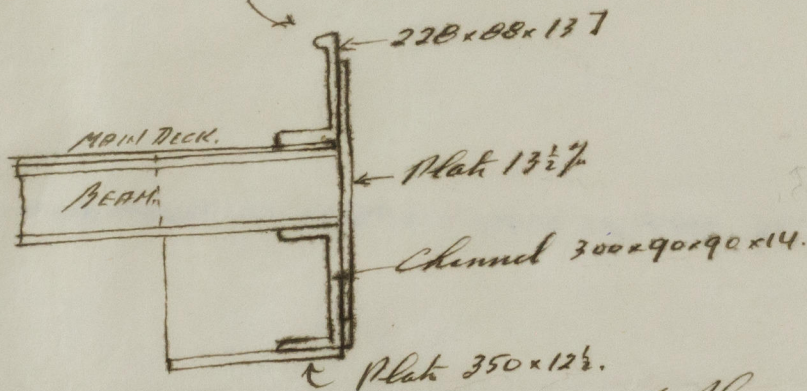 228×88×13 7
MAIN DECK.
BEAM.
Plate 13½ ‰
Channel 300×90×90×14.
Plate 350×12½.